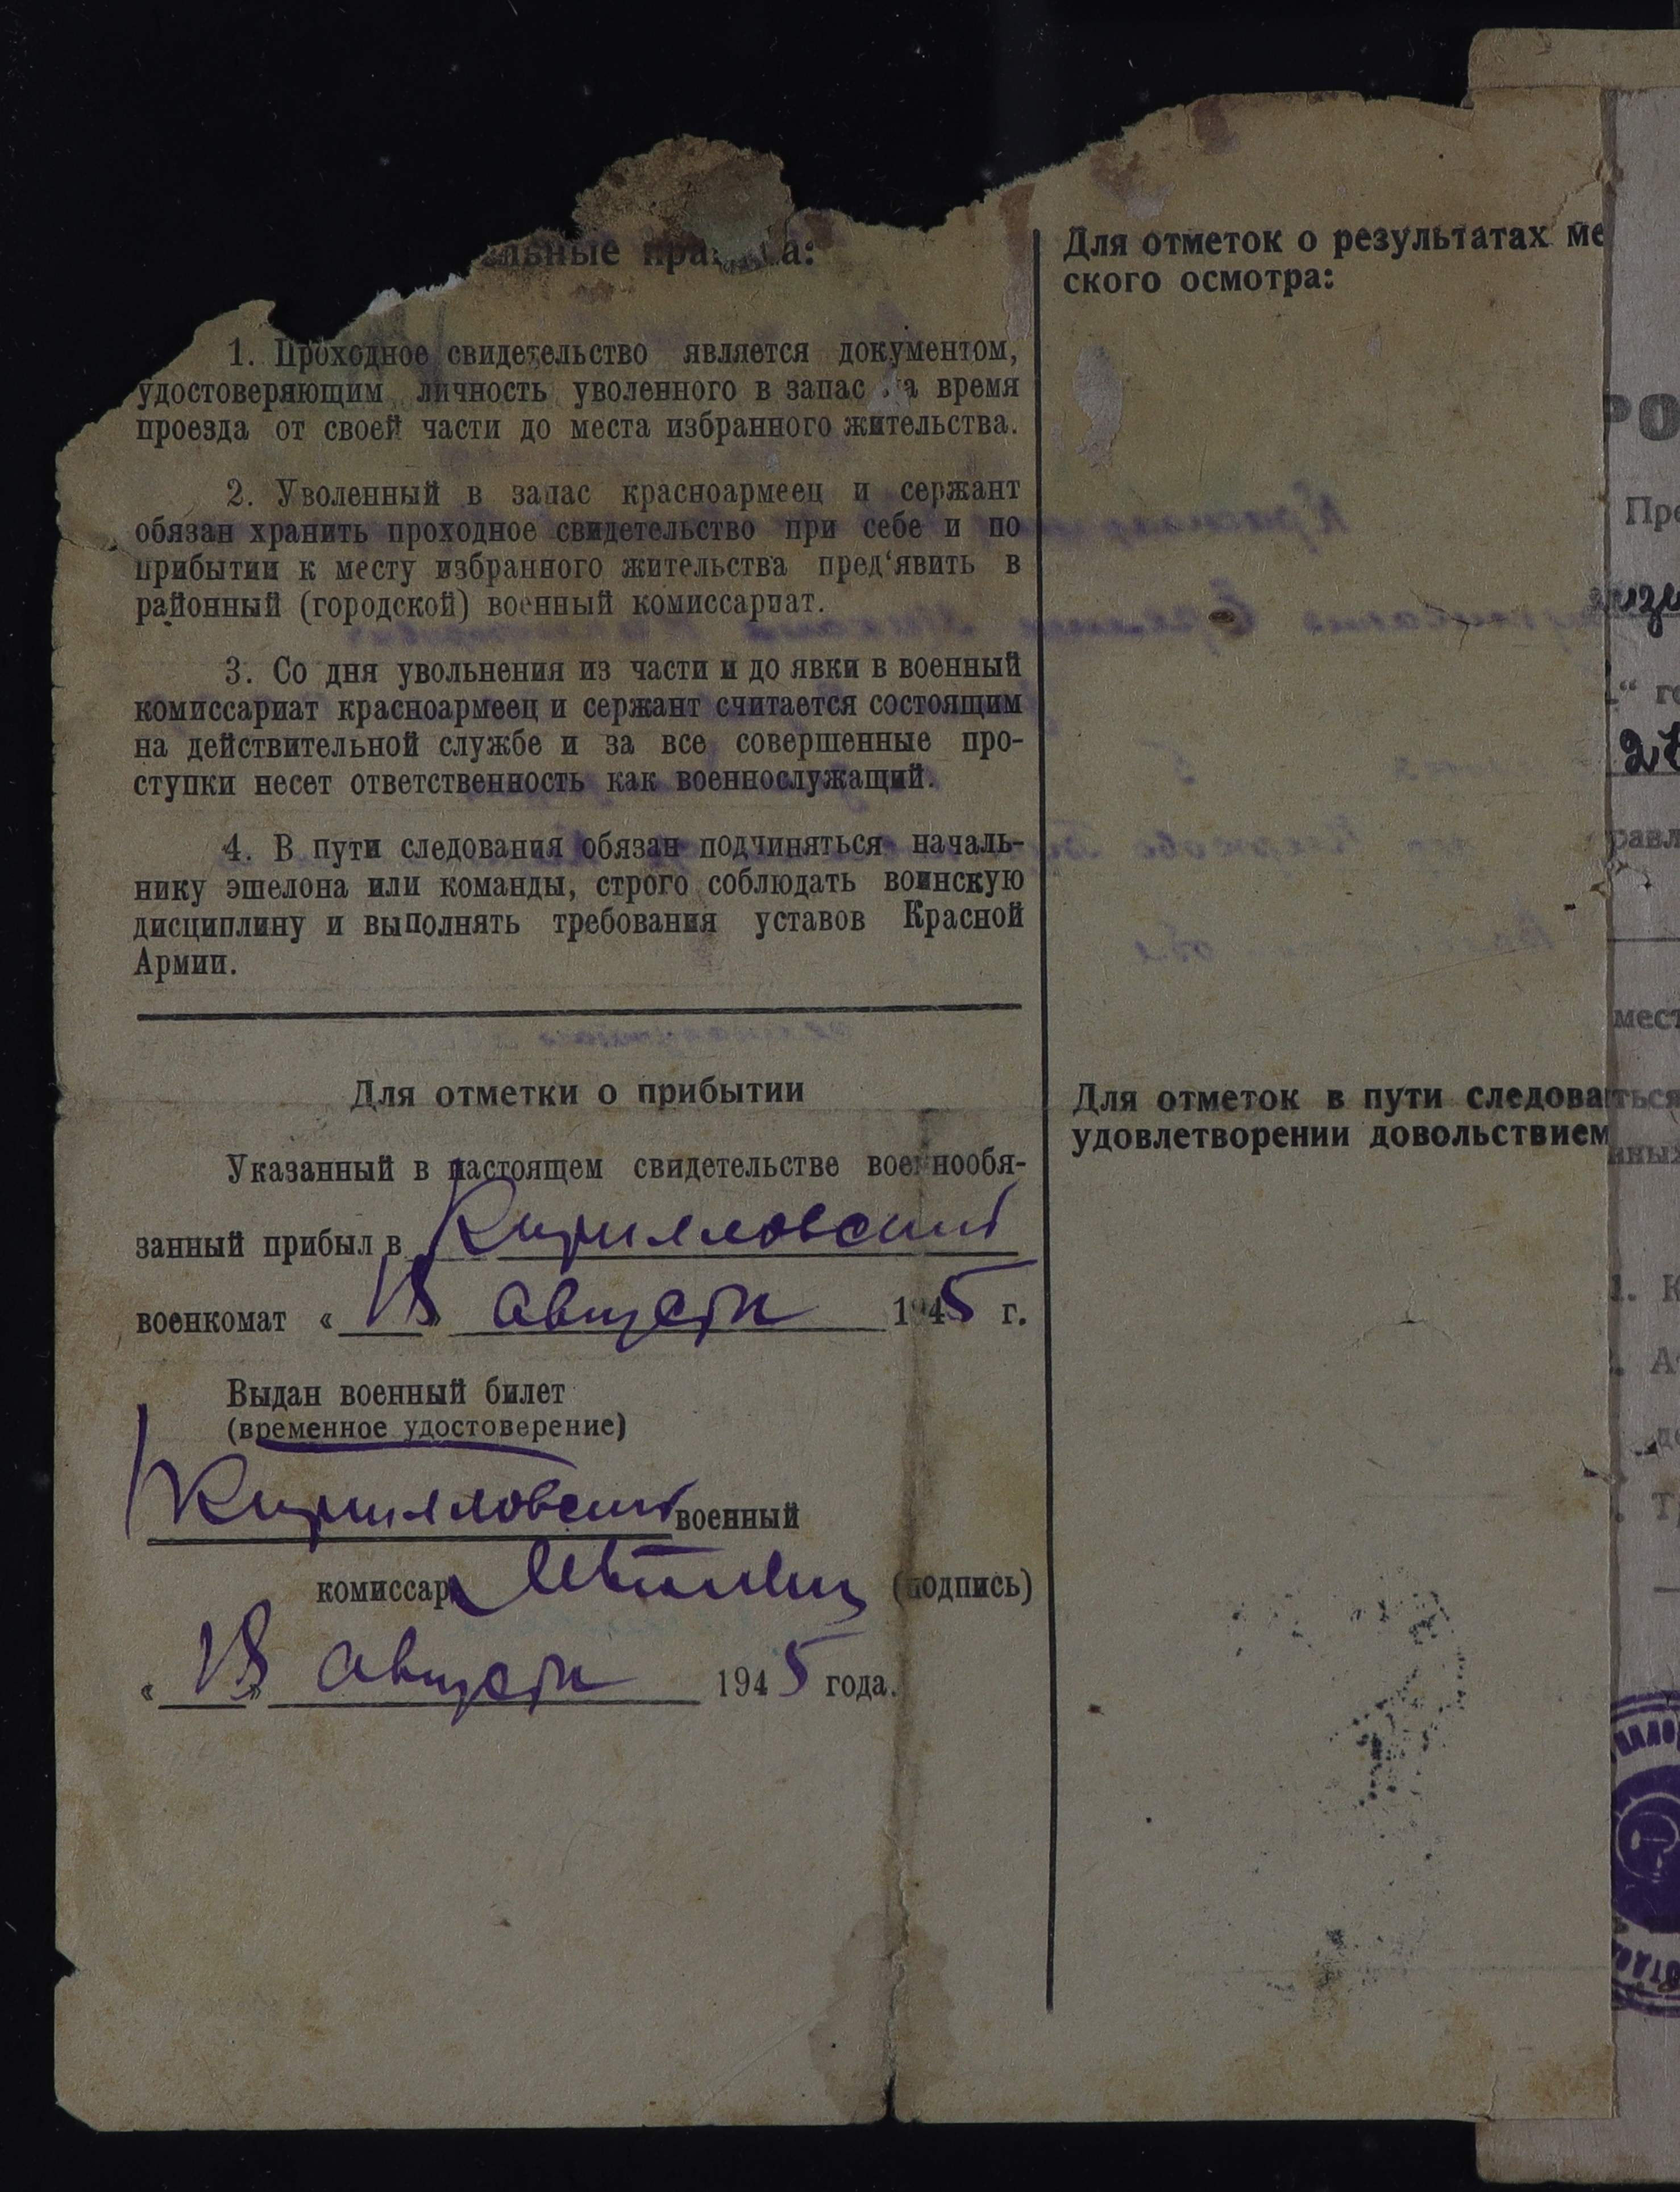 льные пра ла:
1. Проходное свидетельство является документом,
удостоверяющим личность уволенного в запас на время
проезда от своей части до места избранного жительства.
2. Уволенный в запас красноармеец и сержант
обязан хранить проходное свидетельство при себе и по
прибытии к месту избранного жительства пред‘явить в
районный (городской) военный комиссариат.
3. Со дня увольнения из части и до явки в военный
комиссариат красноармеец и сержант считается состоящим
на действительной службе и за все совершенные про-
ступки несет ответственность как военнослужащий.
4. В пути следования обязан подчиняться началь-
нику эшелона или команды, строго соблюдать воинскую
дисциплину и выполнять требования уставов Красной
Армии.
Для отметки о прибытии
Указанный в настоящем свидетельстве военнообя-
занный прибыл в Кирилловский
военкомат « 18 » августа 1945 г.
Выдан военный билет
(временное удостоверение)
Кирилловский военный
комиссар (подпись)
« 18 » августа 1945 года.
Для отметок о результатах ме
ского осмотра:
Для отметок в пути следова
удовлетворении довольствием
РО
Пре
“ го
равл
мест
ться
нных
1. К
2. А